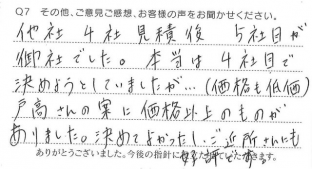 Q7 その他、ご意見ご感想、お客様の声をお聞かせください。
他社4社見積後 5社目が
御社でした。本当は4社目で
決めようとしていましたが…(価格も低価)
戸高さんの案に価格以上のものが
ありました。決めてよかったし、ご近所さんにも
好評である。
ありがとうございました。今後の指針に させていただきます。